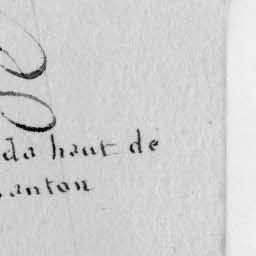 da haut de
anton